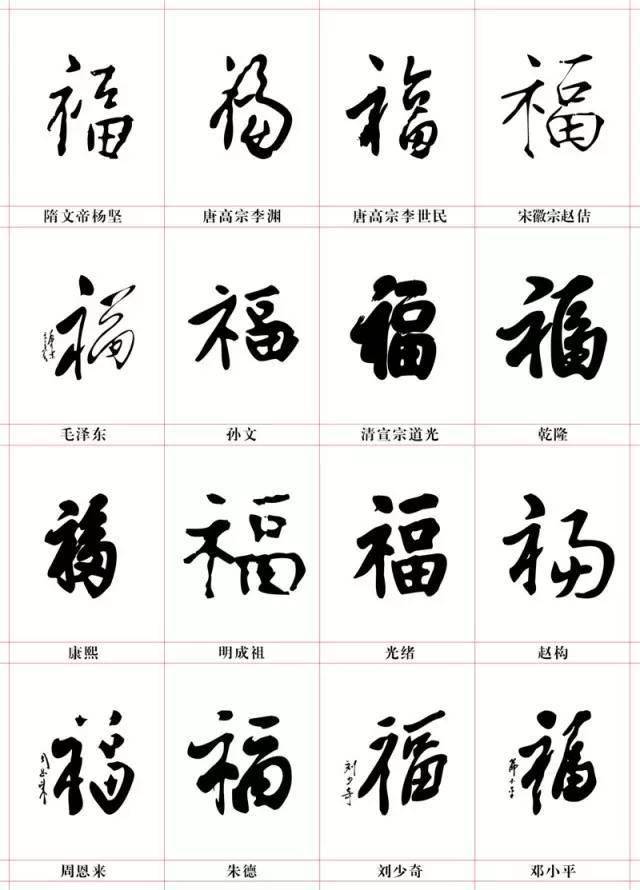 福 福 福 福
隋文帝杨坚 唐高宗李渊 唐高宗李世民 宋徽宗赵佶
福 福 福 福
毛泽东 孙文 清宣宗道光 乾隆
福 福 福 福
康熙 明成祖 光绪 赵构
周恩来 福 福 刘少奇 福 邓小平 福
周恩来 朱德 刘少奇 邓小平